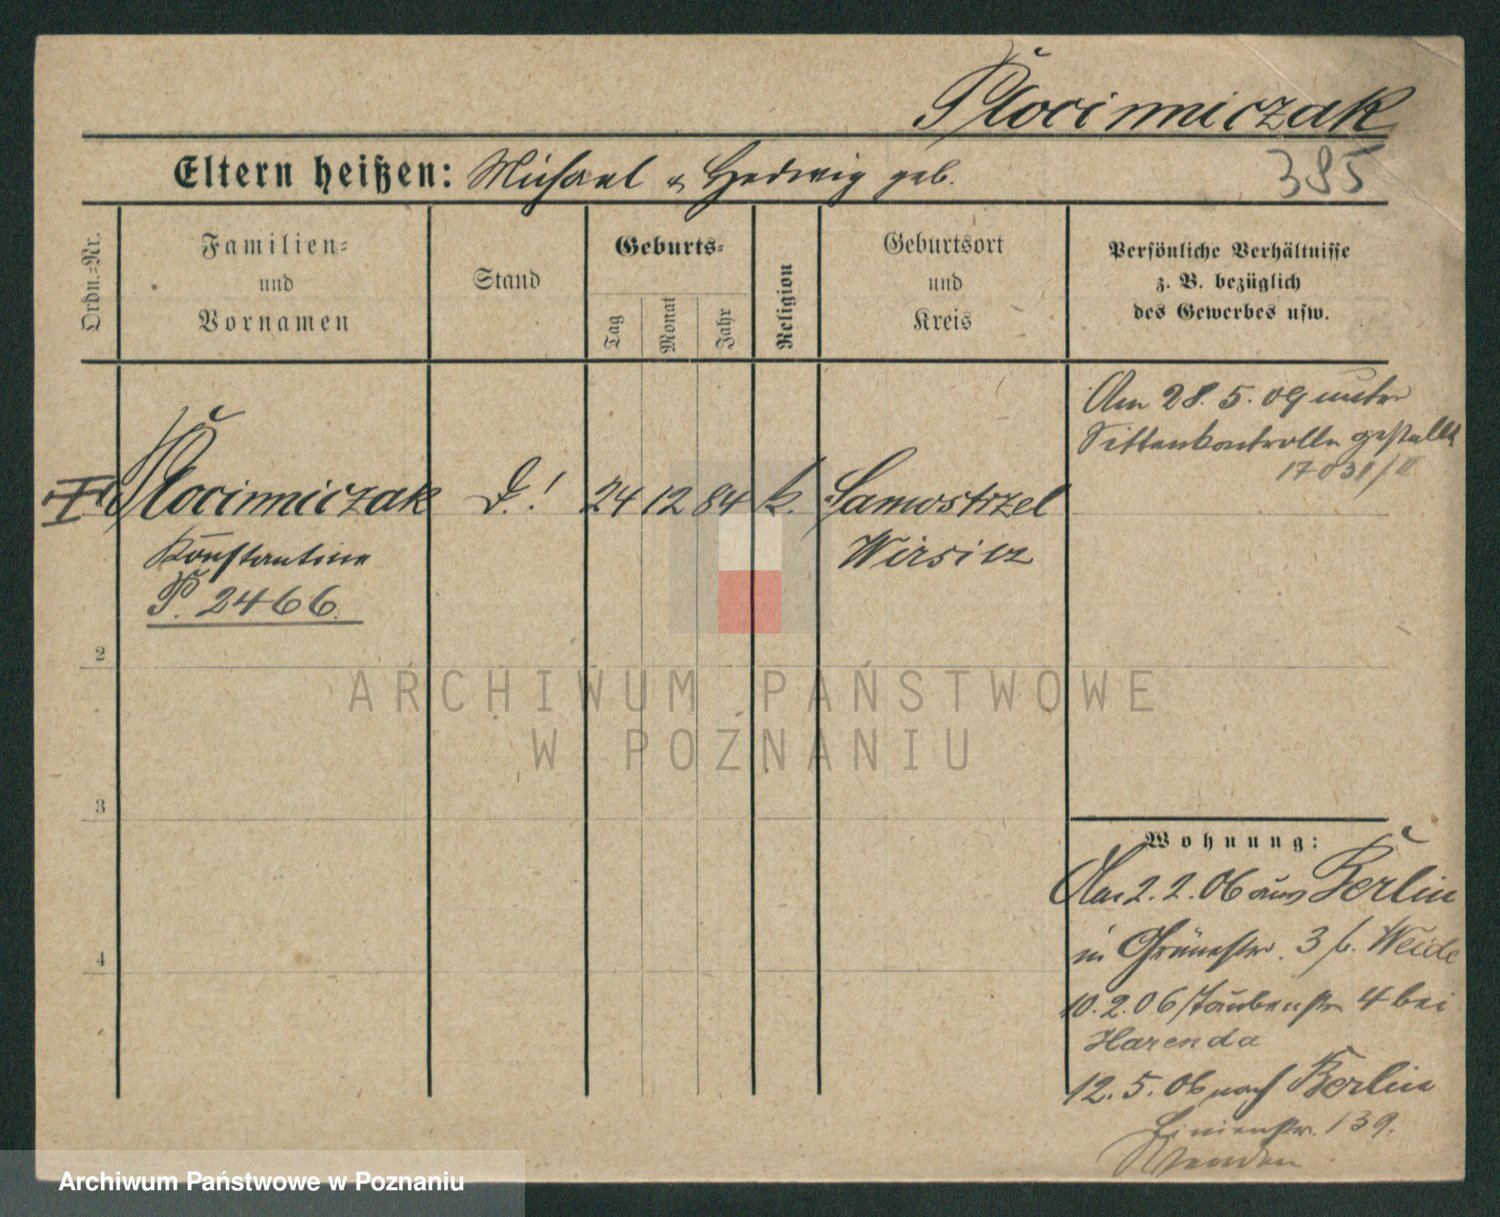 Płocinniczak
Eltern heißen: Michael & Hedwig geb.
385
Ordn.=Nr.
Familien=
und
Vornamen
Stand
Geburts=
Tag
Monat
Jahr
Religion
Geburtsort
und
Kreis
Persönliche Verhältnisse
z. B. bezüglich
des Gewerbes usw.
Am 28. 5. 09 unter
Sittenkontrolle gestellt
Płocinniczak D.! 24 12 84 k. Samostrzel
Konstantine Wirsitz
P. 2466.
2
3
4
Wohnung:
Am 2. 2. 06 aus Berlin
in Grünestr. 3 b. Weide
10. 2. 06 Taubenstr 4 bei
Harenda
12. 5. 06 nach Berlin
Linienstr. 139.
ARCHIWUM PAŃSTWOWE
W POZNANIU
Archiwum Państwowe w Poznaniu